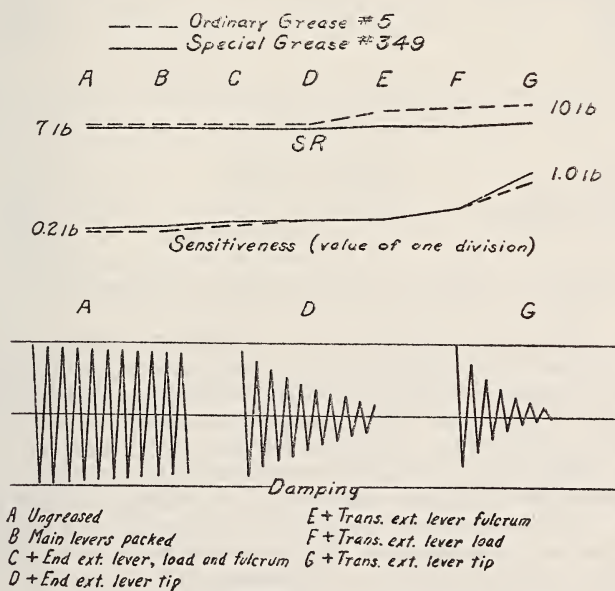 Ordinary Grease #5
Special Grease #349
A B C D E F G
7 lb
10 lb
SR
0.2 lb
1.0 lb
Sensitiveness (value of one division)
A D G
Damping
A Ungreased
B Main levers packed
C + End ext. lever, load and fulcrum
D + End ext. lever tip
E + Trans. ext. lever fulcrum
F + Trans. ext. lever load
G + Trans. ext. lever tip